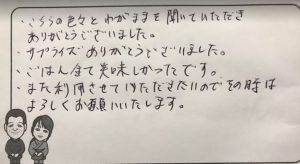 ・こちらの色々とわがままを聞いていただき
ありがとうございました。
・サプライズありがとうございました。
・ごはん全て美味しかったです。
・また利用させていただきたいのでその時は
よろしくお願いいたします。